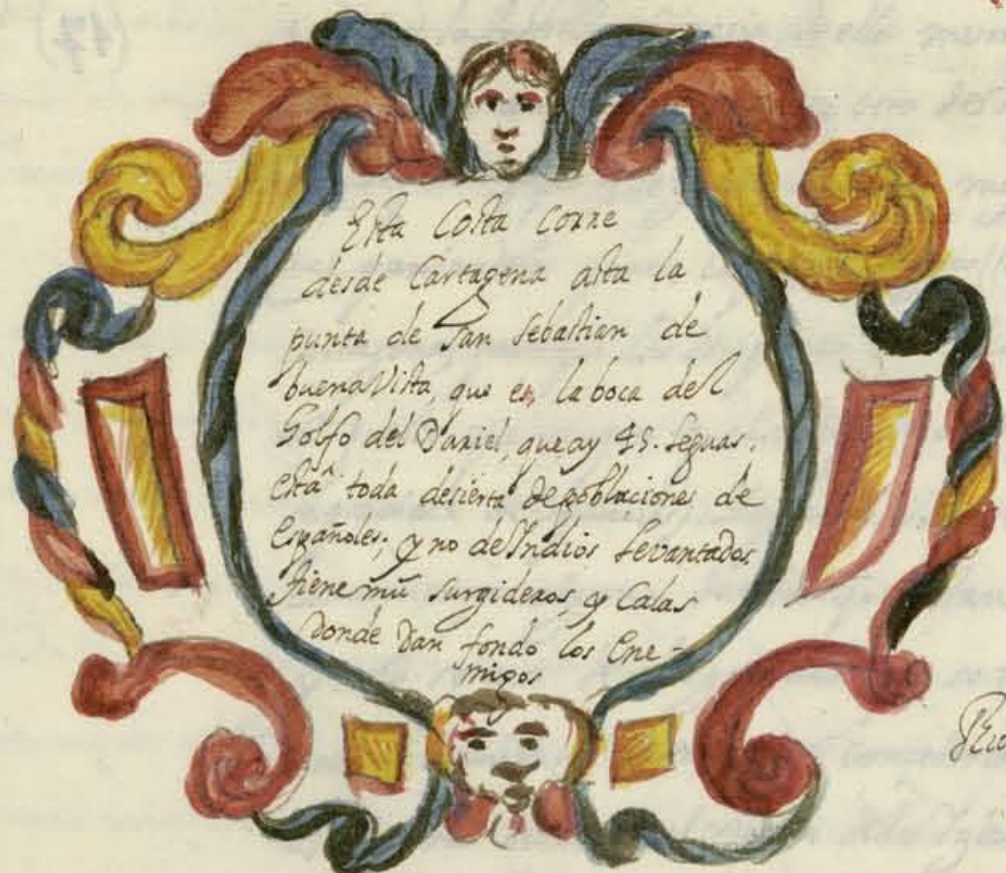 Esta Costa corre
desde Cartagena asta la
punta de San Sebastian de
buena Vista, que es, la boca del
Golfo del Dariel, que ay 45. leguas.
està toda desierta de poblaciones de
Españoles; y no de Indios levantados
tiene mū surgideros, y Calas
donde Dan fondo los Ene-
migos
(17)